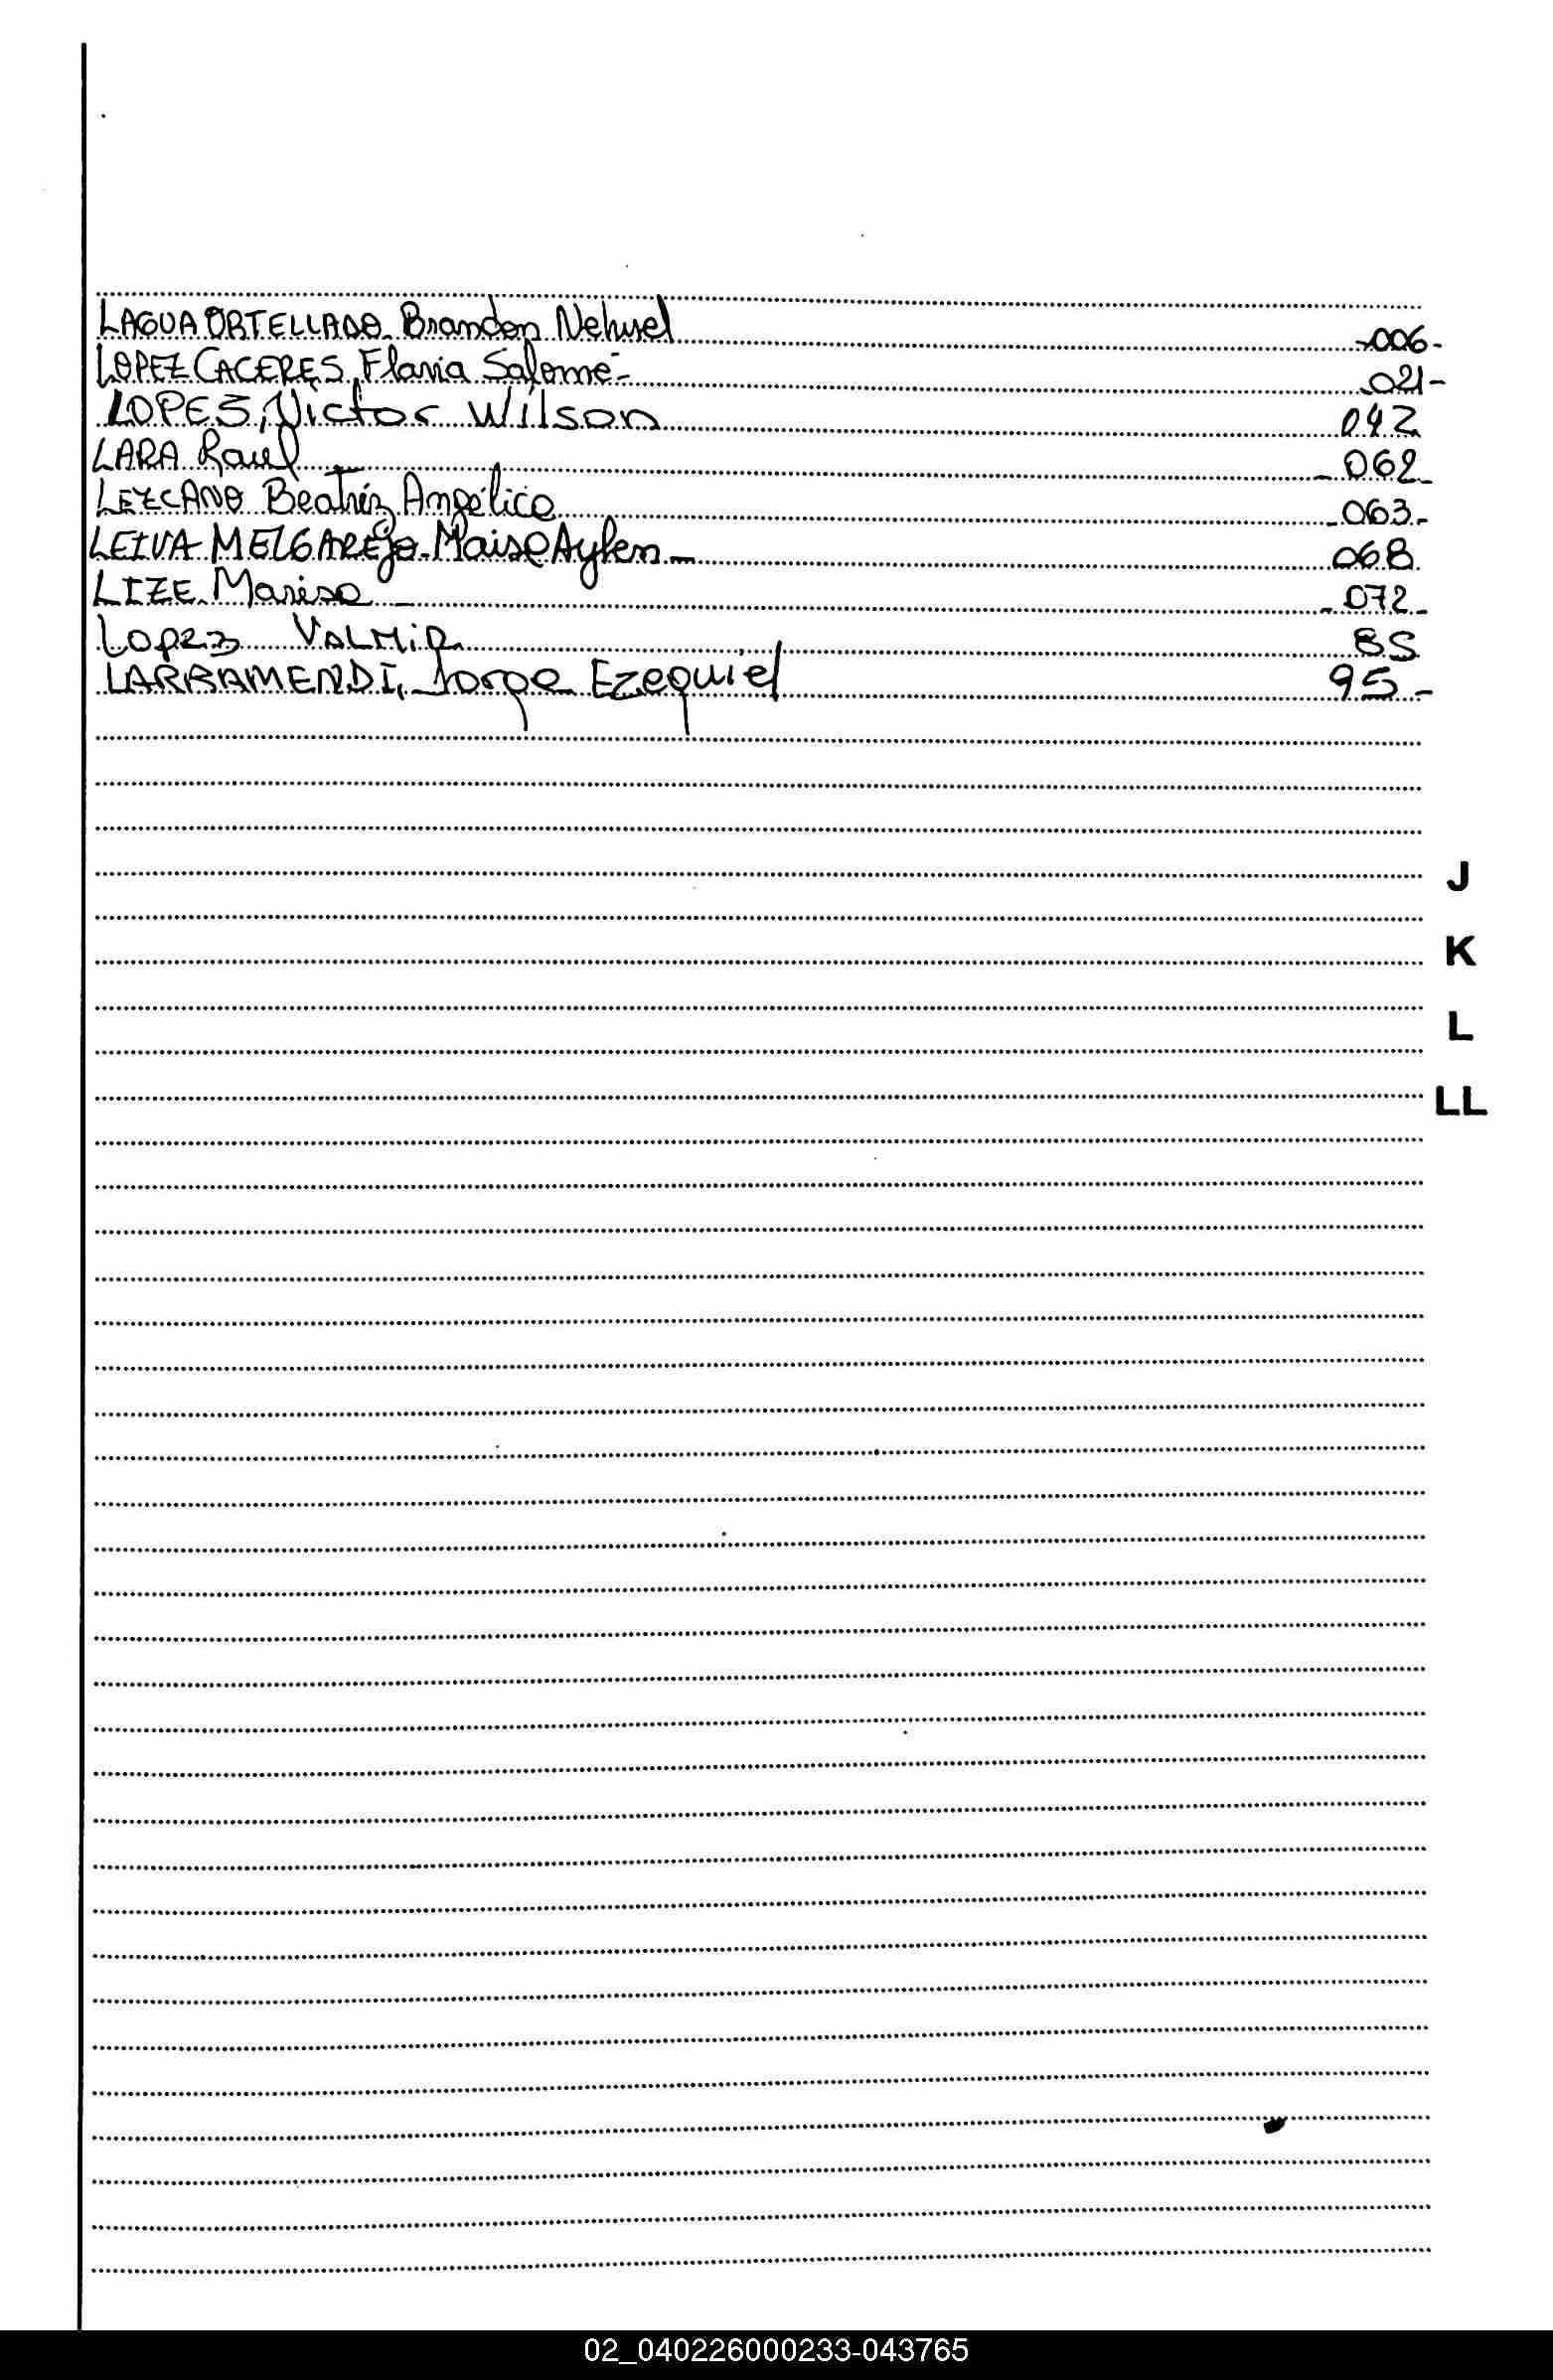 LAGUA ORTELLADO Brandon Nehuel -006-
LOPEZ CACERES, Flavia Salomé- 021-
LOPES, Victor Wilson 042
LARA Raul -062-
LEZCANO Beatriz Angélica -063-
LEIVA MELGAREJO Maisa Aylen- 068
LIZE Marisa - -072-
Lopez VALMIR 85
LARRAMENDI, Jorge Ezequiel 95-
J
K
L
LL
02_040226000233-043765